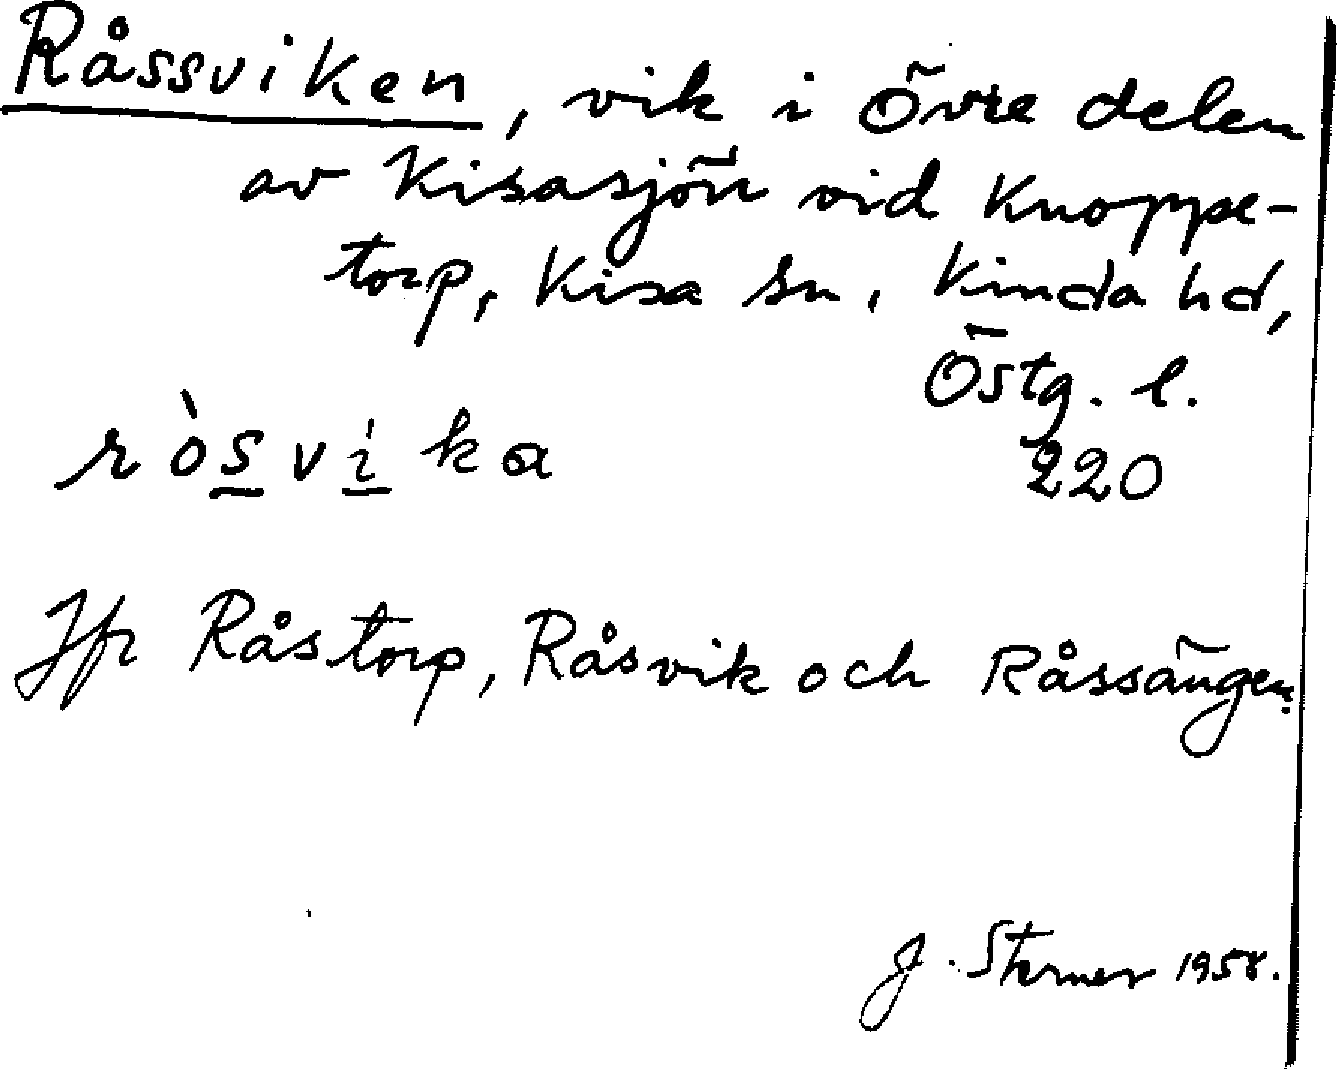 Råssviken, vik i övre delen
av Kisasjön vid Knoppe-
torp, Kisa sn, Kinda hd,
Östg. l.
220
ròsvika
Jfr Råstorp, Råsvik och Råssängen.
J. Sterner 1958.